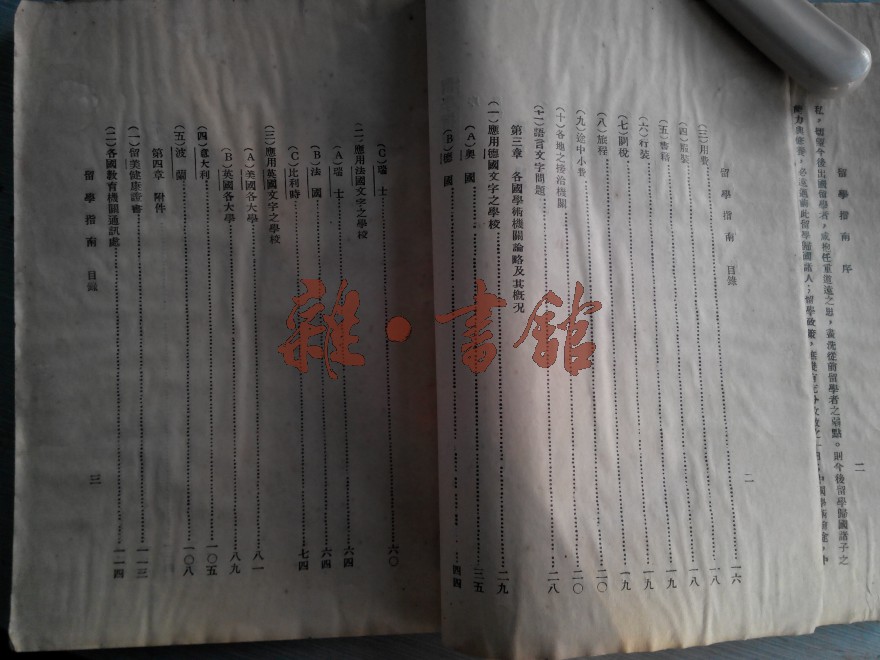 留學指南 序 二
留學歸國諸子之
留學指南 目錄 二
(三)月費 一六
(四)服裝 一八
(五)書籍 一八
(六)行裝 一九
(七)關稅 一九
(八)旅程 一九
(九)途中小費 二〇
(十)各地之接洽機關 二〇
(十一)語言文字問題 二八
第三章 各國學術機關論略及其概況
(一)應用德國文字之學校 二九
(A)奧國 二五
(B)德國 四四
(C)瑞士 六〇
(二)應用法國文字之學校 六四
(A)瑞士 六四
(B)法國 六四
(C)比利時 七四
(三)應用英國文字之學校
(A)美國各大學 八一
(B)英國各大學 八九
(四)意大利 一〇五
(五)波蘭 一〇八
第四章 附件
(一)留美健康證書 一一三
(二)各國教育機關通訊處 一一四
留學指南 目錄 三
雜·書館